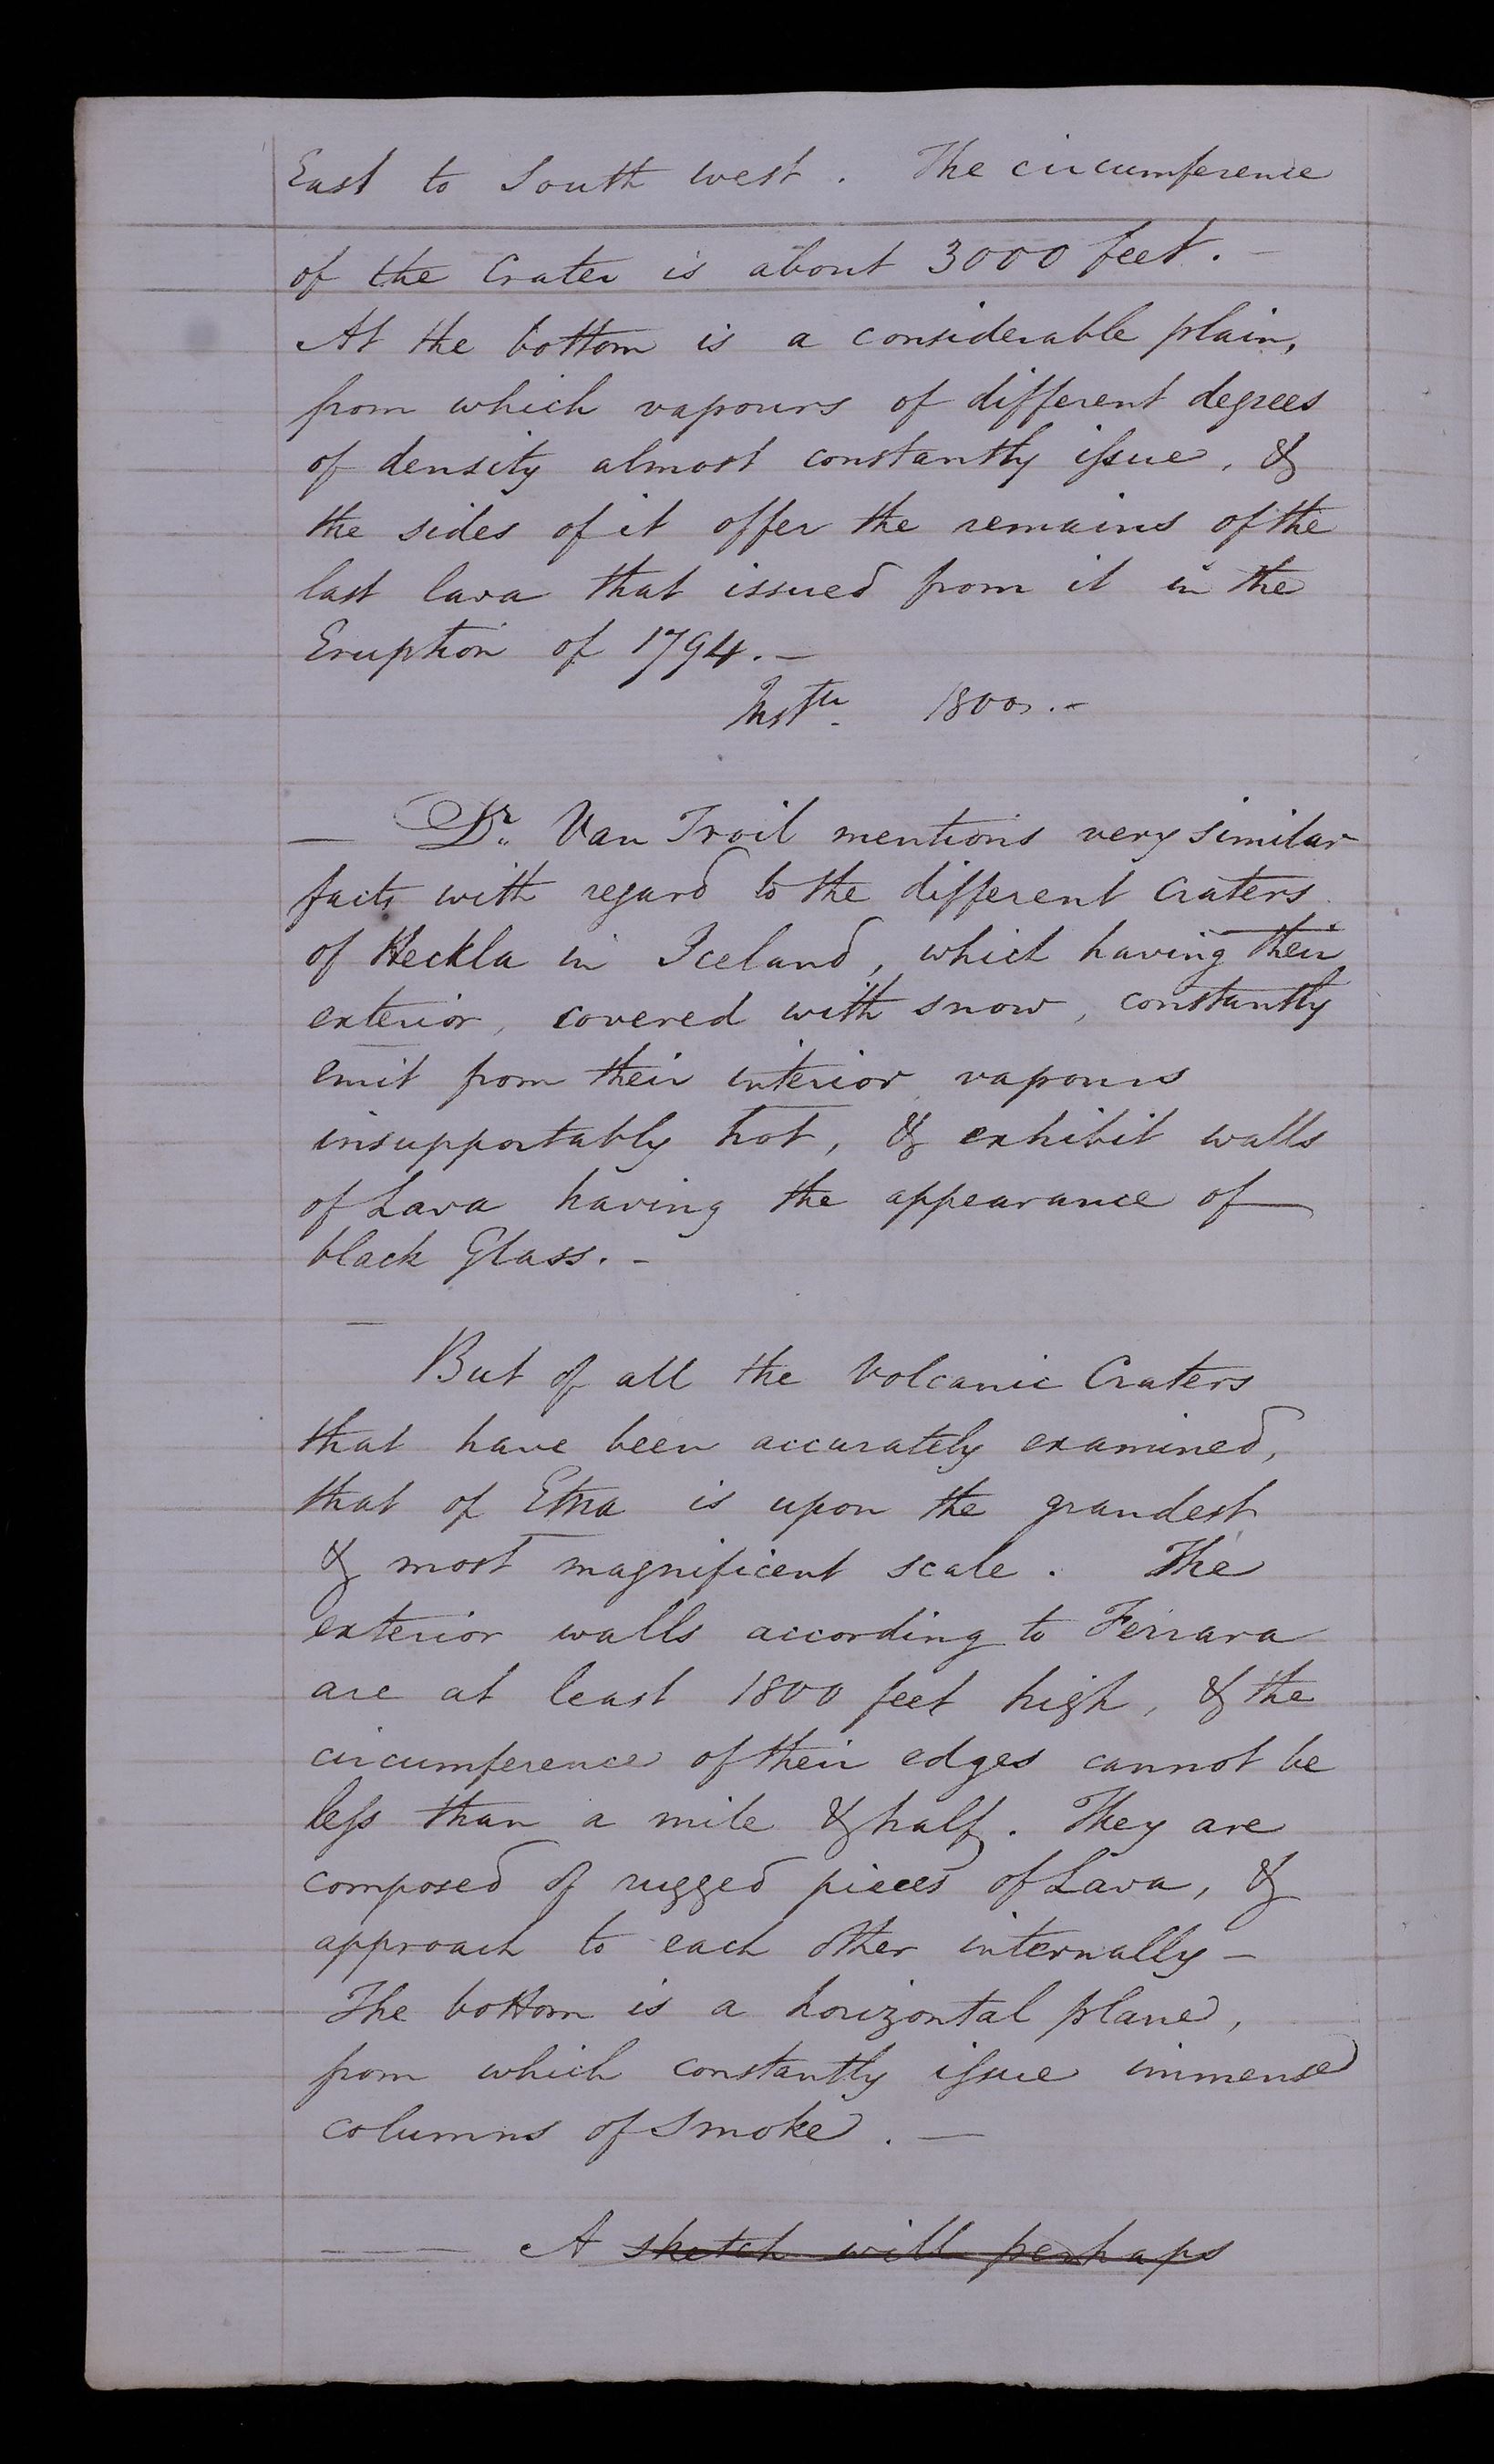 East to South West. The circumference
of the Crater is about 3000 feet. -
At the bottom is a considerable plain,
from which vapours of different degrees
of density almost constantly issue, &
the sides of it offer the remains of the
last lava that issued from it in the
Eruption of 1794. -
1800. -
— Dr. Van Troil mentions very similar
facts with regard to the different Craters
of Heckla in Iceland, which having their
exterior, covered with snow, constantly
emit from their interior vapours
insupportably hot, & exhibit walls
of Lava having the appearance of
black Glass. -
— But of all the Volcanic Craters
that have been accurately examined,
that of Etna is upon the grandest
& most magnificent scale. The
exterior walls according to Ferrara
are at least 1800 feet high, & the
circumference of their edges cannot be
less than a mile & half. They are
composed of rugged pieces of Lava, &
approach to each other internally -
The bottom is a horizontal plane,
from which constantly issue immense
columns of Smoke. —
— A sketch will perhaps